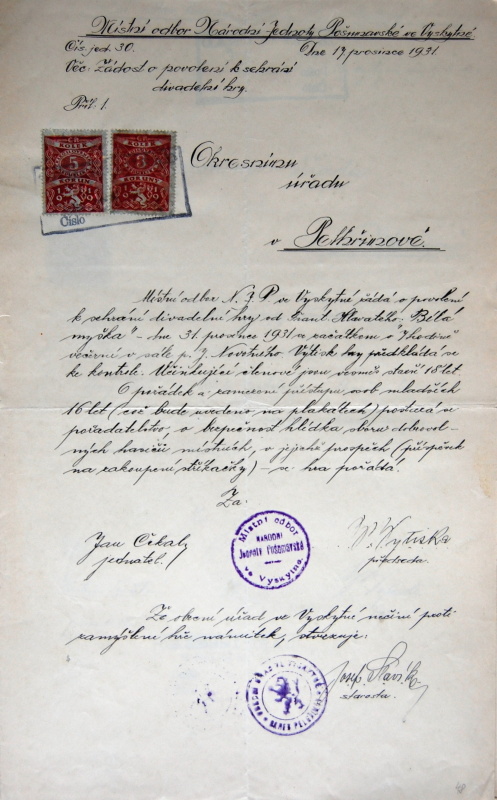 Místní odbor Národní Jednoty Pošumavské ve Vyskytné
Čís. jed. 30. Dne 19 prosince 1931.
Věc: Žádost o povolení k sehrání
divadelní hry.
Příl: 1.
Okresnímu
úřadu
v Pelhřimově.
5
KOLEK
KORUN
8
KOLEK
KORUN
Číslo
Místní odbor N.J.P. ve Vyskytné žádá o povolení
k sehrání divadelní hry od Bílá
myška" - dne 31. prosince 1931 se začátkem o hodině
večerní v sále p. J. Novotného. Výtisk hry předkládá se
ke kontrole. Účinkující členové jsou vesměs starší 18 let.
O pořádek a zamezení přístupu osob mladších
16 let (což bude uvedeno na plakátech) postará se
pořadatelstvo, o bezpečnost hlídka sboru dobrovol-
ných hasičů místních, v jejichž prospěch (příspěvek
na zakoupení stříkačky) - se hra pořádá.
Za
Jan Čekal
jednatel.
Místní odbor
NÁRODNÍ
Jednoty Pošumavské
ve Vyskytné
Vytiska
předseda.
Že obecní úřad ve Vyskytné nečiní proti
zamýšlené hře námitek, stvrzuje:
Josef
starosta.
48